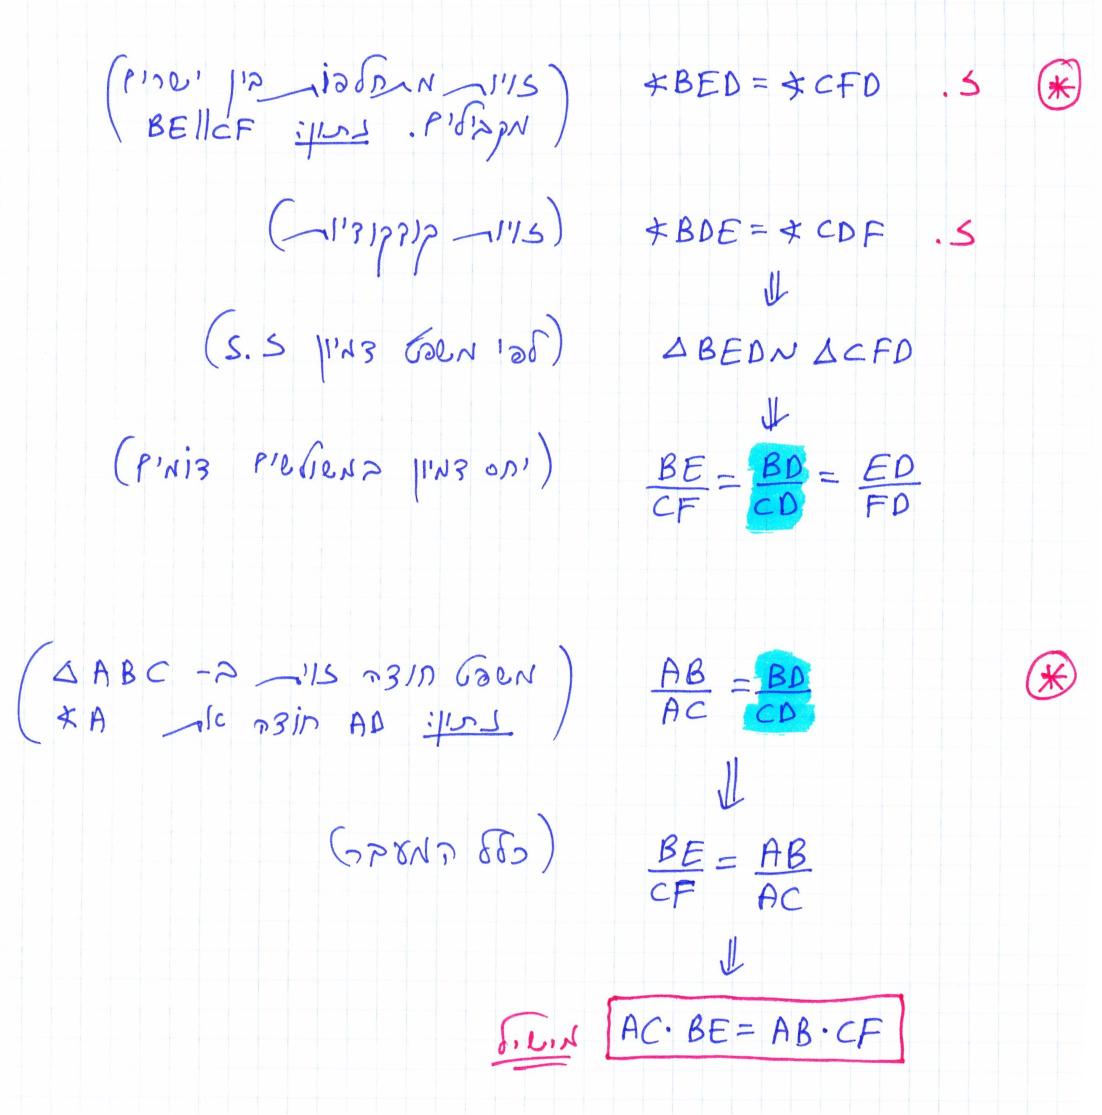 ז. ∢BED = ∢CFD (זווית מתחלפות בין ישרים
מקבילים. נתון: BE||CF)
ז. ∢BDE = ∢CDF (זווית קודקודיות)
⇓
△BED ~ △CFD (לפי משפט דמיון ז.ז)
⇓
BE/CF = BD/CD = ED/FD (יחס דמיון במשולשים דומים)
AB/AC = BD/CD (משפט חוצה זווית ב- △ABC
נתון: AD חוצה את ∢A)
⇓
BE/CF = AB/AC (כלל המעבר)
⇓
AC · BE = AB · CF מ.ש.ל